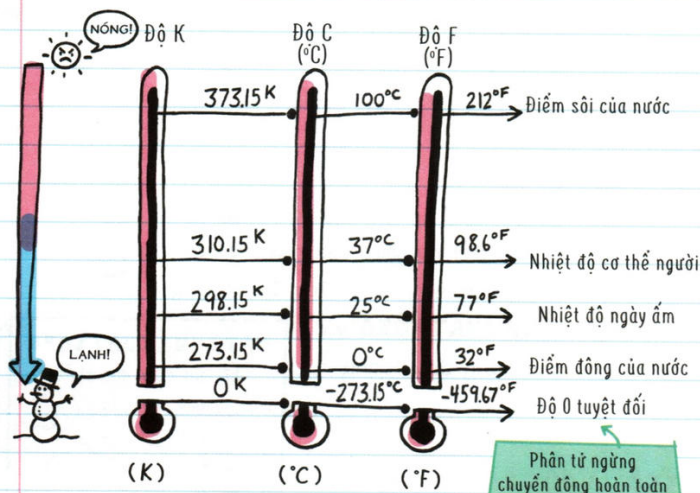 NÓNG!
Độ K
Độ C
(°C)
Độ F
(°F)
373.15 K
100°C
212°F
Điểm sôi của nước
310.15 K
37°C
98.6°F
Nhiệt độ cơ thể người
298.15 K
25°C
77°F
Nhiệt độ ngày ấm
LẠNH!
273.15 K
0°C
32°F
Điểm đông của nước
0 K
-273.15°C
-459.67°F
Độ 0 tuyệt đối
(K)
(°C)
(°F)
Phân tử ngừng
chuyển động hoàn toàn